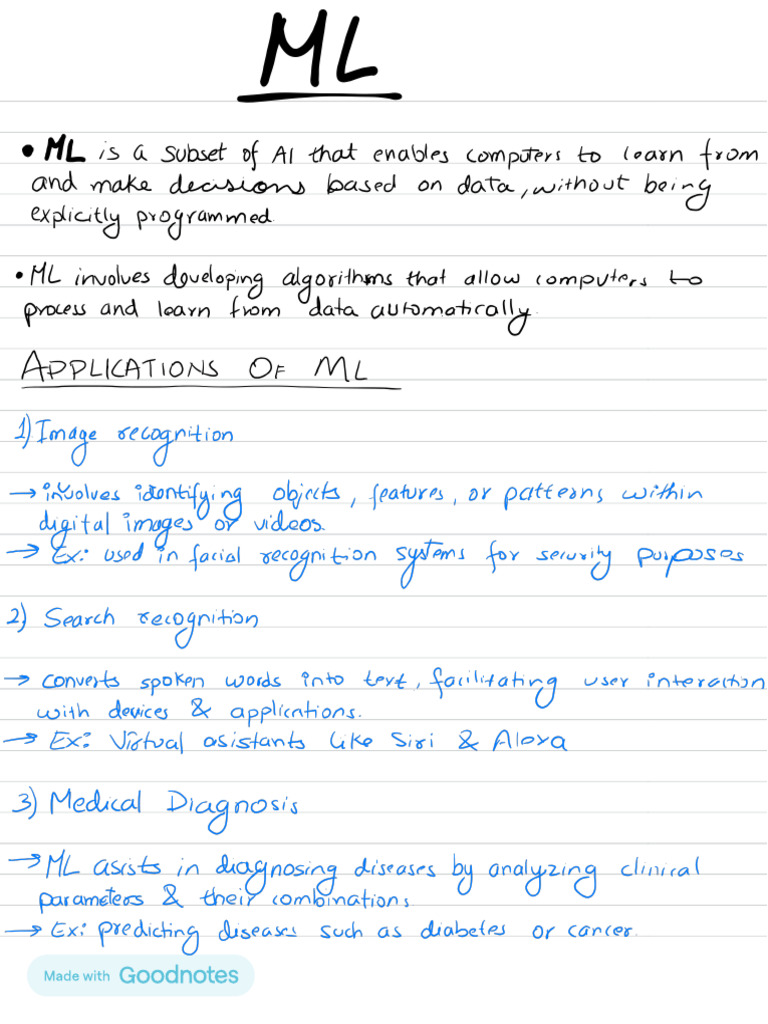 ML
• ML is a subset of AI that enables computers to learn from
and make decisions based on data, without being
explicitly programmed.
• ML involves developing algorithms that allow computers to
process and learn from data automatically.
APPLICATIONS OF ML
1) Image recognition
→ involves identifying objects, features, or patterns within
digital images or videos.
→ Ex: used in facial recognition systems for security purposes
2) Search recognition
→ converts spoken words into text, facilitating user interaction
with devices & applications.
→ Ex: Virtual asistants like Siri & Alexa
3) Medical Diagnosis
→ ML asists in diagnosing diseases by analyzing clinical
parameters & their combinations
→ Ex: predicting diseases such as diabetes or cancer.
Made with Goodnotes